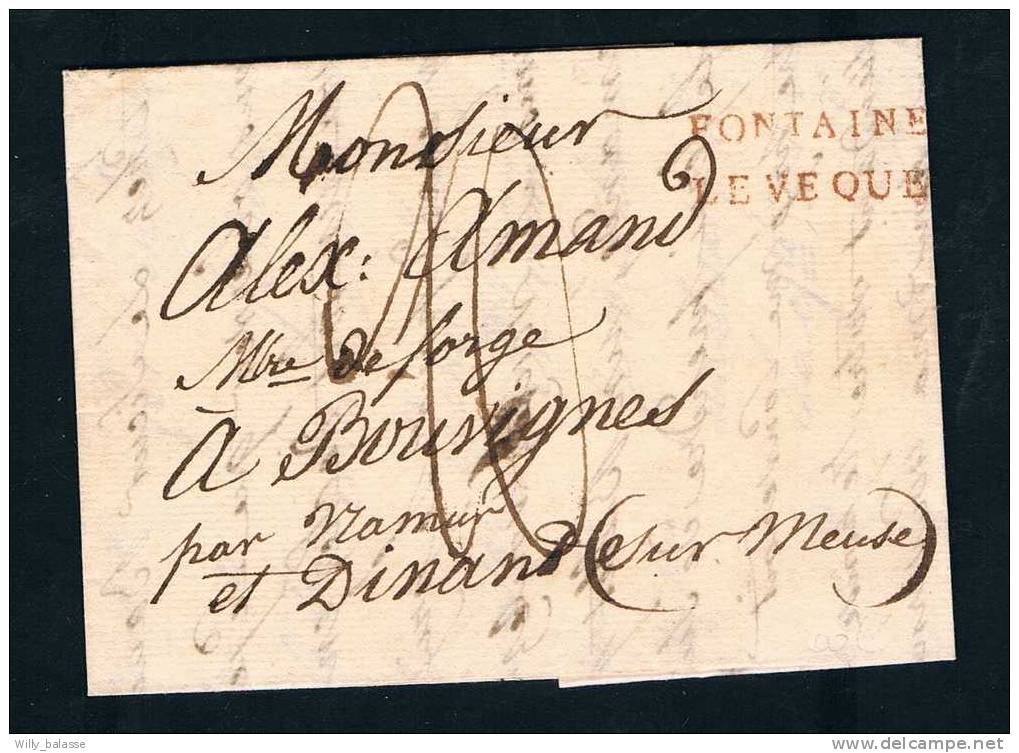 Monsieur
FONTAINE
LEVEQUE
Alex: Amand
Mtre de forge
à Bouvignes
par Namur
et Dinand (sur Meuse)
willy_balasse
delcampe.net